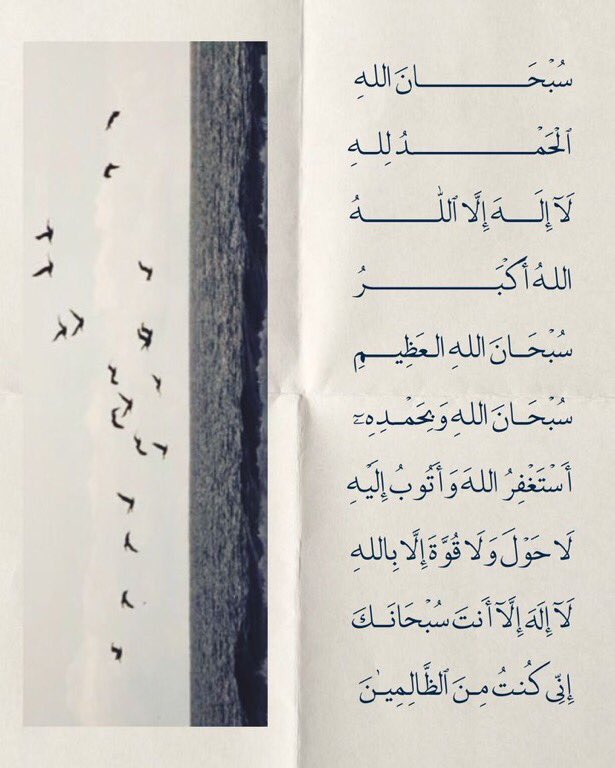 سُبْحَـــانَ اللهِ
ٱلْحَمْـــدُ لِلهِ
لَآ إِلَـــهَ إِلَّا ٱللَّـــهُ
اللهُ أَكْبَـــرُ
سُبْحَـانَ اللهِ الـعَظِيـمِ
سُبْحَـانَ اللهِ وَبِحَمْـدِهِۦ
أَسْتَغْفِرُ اللهَ وَأَتُوبُ إِلَيْهِ
لَا حَوْلَ وَلَا قُوَّةَ إِلَّا بِاللهِ
لَآ إِلَهَ إِلَّآ أَنتَ سُبْحَانَـكَ
إِنِّي كُنتُ مِنَ ٱلظَّالِمِينَ